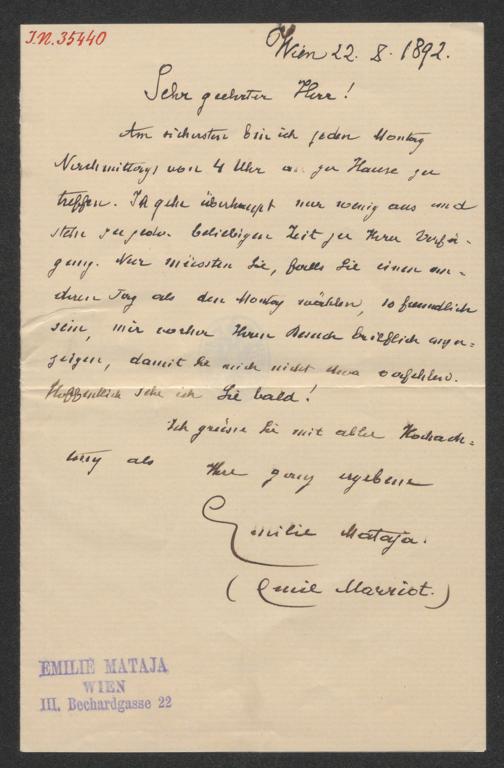 I.N. 35440
Wien 22. 8. 1892.
Sehr geehrter Herr!
Am sichersten bin ich jeden Montag
Nachmittag, von 4 Uhr an zu Hause zu
treffen. Ich gehe überhaupt nur wenig aus und
stehe zu jeder beliebigen Zeit zu Ihrer Verfü-
gung. Nur müssten Sie, falls Sie einen an-
deren Tag als den Montag wählen, so freundlich
sein, mir vorher Ihren Besuch brieflich anzu-
zeigen, damit Sie mich nicht etwa verfehlen.
Hoffentlich sehe ich Sie bald!
Ich grüsse Sie mit aller Hochach-
tung als Ihre ganz ergebene
Emilie Mataja.
(Emil Marriot.)
EMILIE MATAJA
WIEN
III. Bechardgasse 22